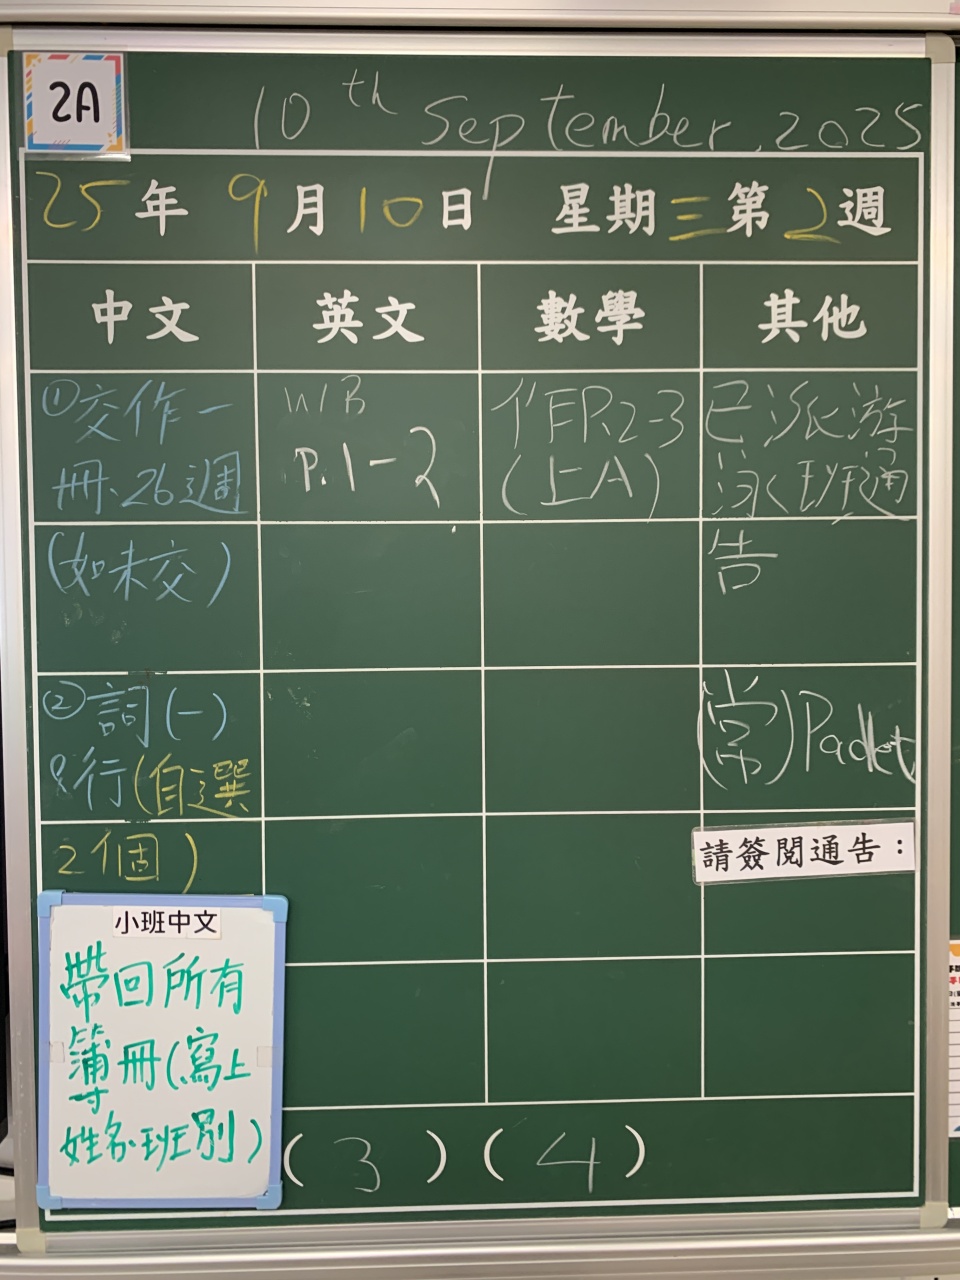 2A
10th September, 2025
25年9月10日 星期三第2週
中文 英文 數學 其他
①交作一
冊、26週
(如未交)
②詞(一)
8行(自選
2個)
W/B
P.1-2
作P.2-3
(上A)
已派游
泳班通
告
(常)Packet
請簽閱通告：
小班中文
帶回所有
簿冊(寫上
姓名、班別)
(3)(4)